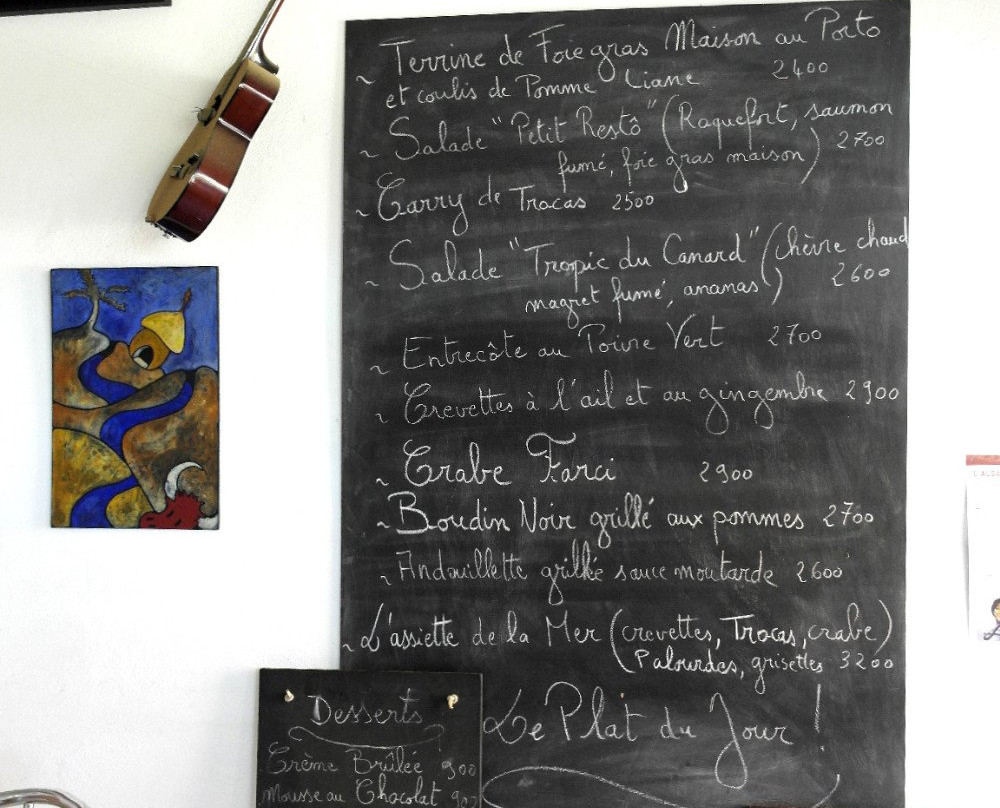 ~ Terrine de Foie gras Maison au Porto
et coulis de Pomme Liane 2400
~ Salade "Petit Restô" (Raquefort, saumon
fumé, foie gras maison) 2700
~ Carry de Trocas 2500
~ Salade "Tropic du Canard" (chèvre chaud
magret fumé, ananas) 2600
~ Entrecôte au Poivre Vert 2700
~ Crevettes à l'ail et au gingembre 2900
~ Crabe Farci 2900
~ Boudin Noir grillé aux pommes 2700
~ Andouillette grillée sauce moutarde 2600
~ L'assiette de la Mer (crevettes, Trocas, crabe)
(Palourdes, grisettes 3200
Le Plat du Jour !
Desserts
Crème Brûlée 900
Mousse au Chocolat 900